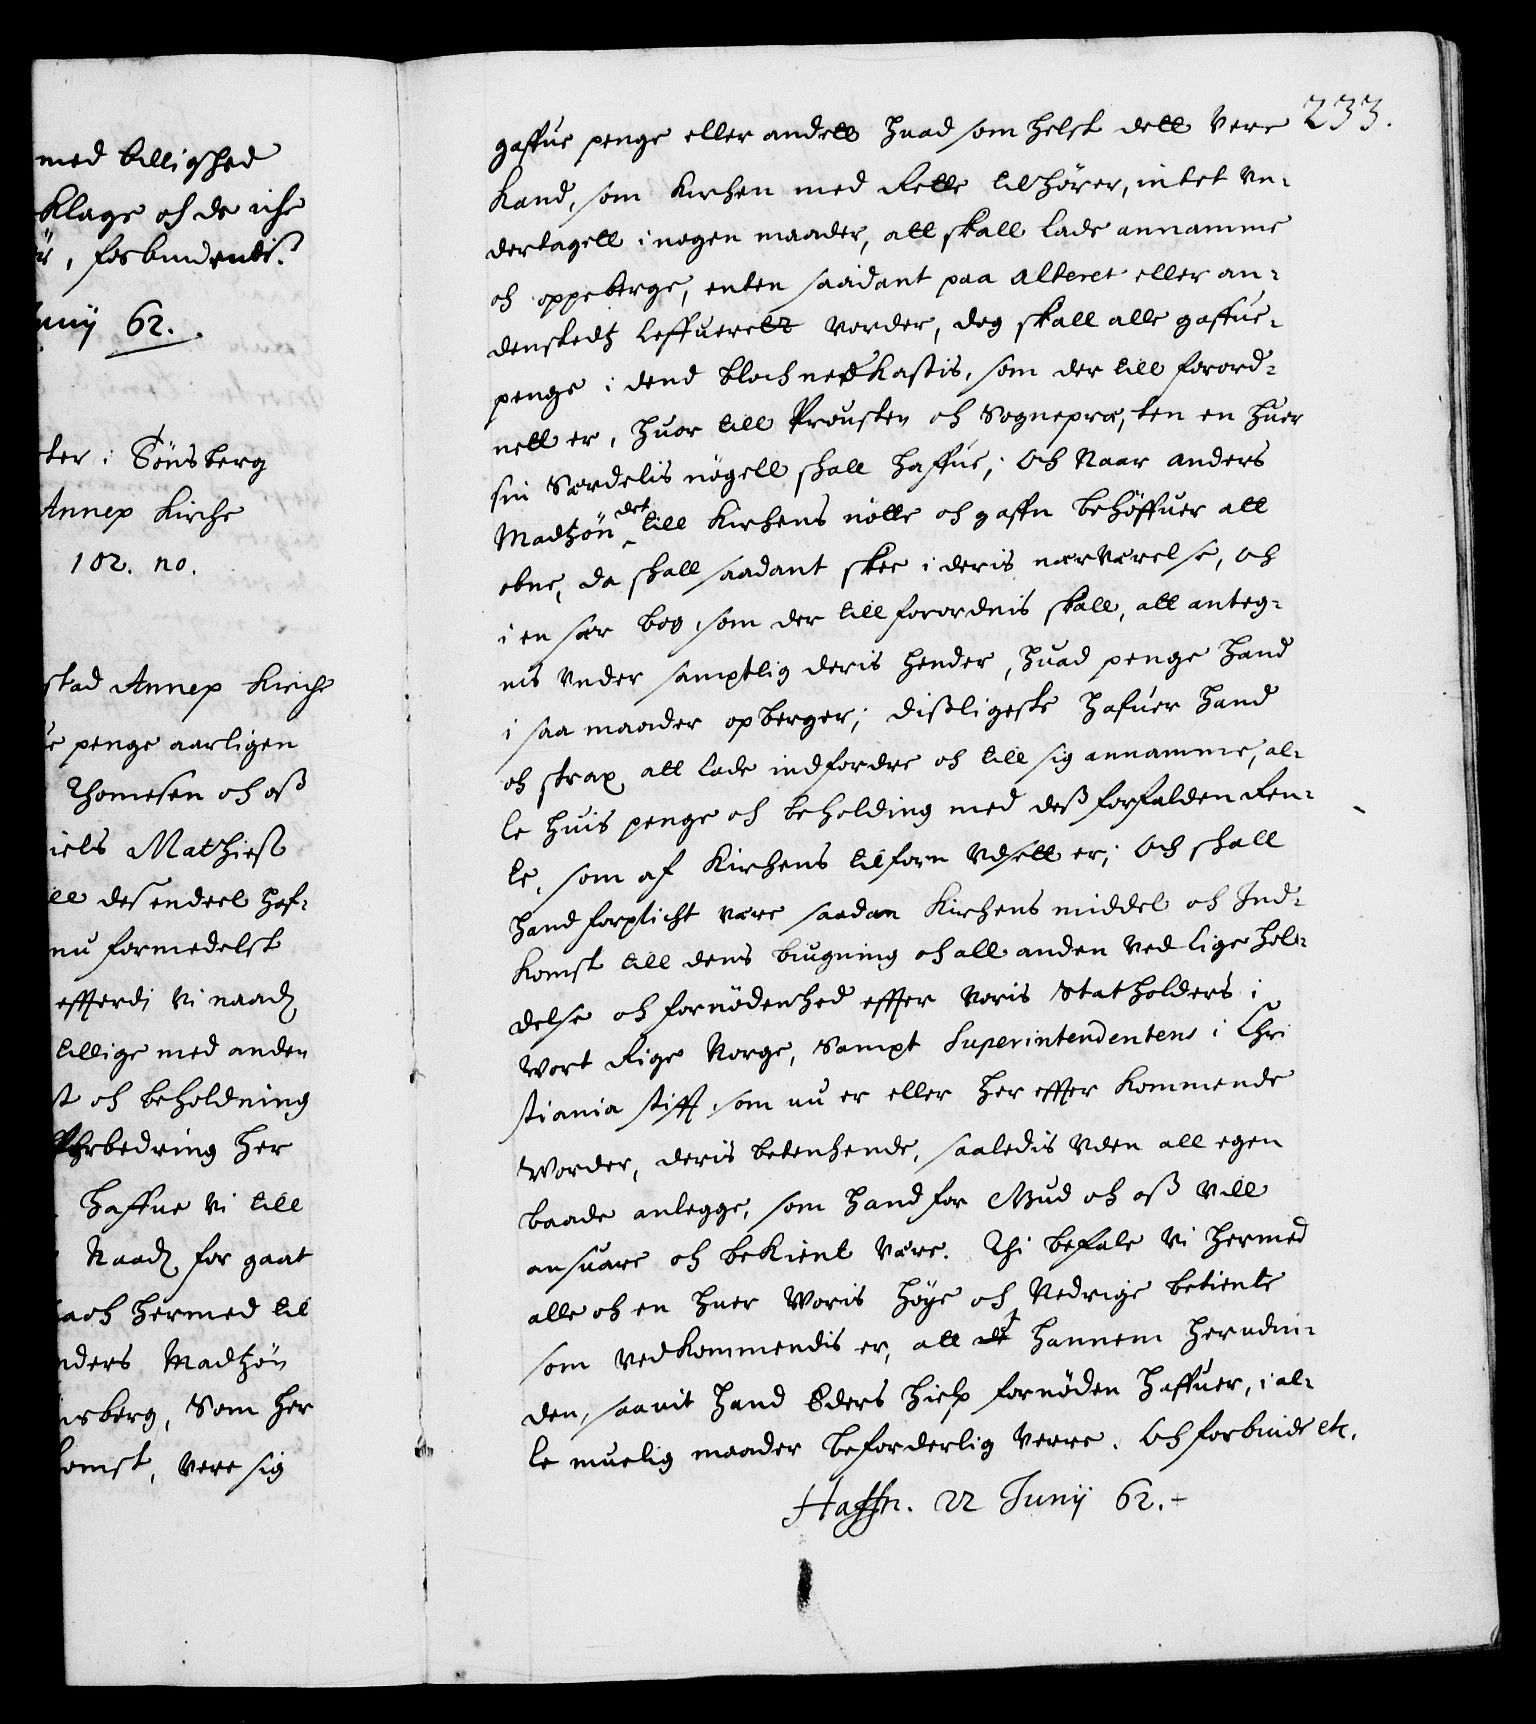 med billighed
Klage och de icke
, forbundentis.
Junij 62.
ter i Tönsberg
Annex Kirche
102. no.
stad Annex Kirche
penge aarligen
Thomesen och oß
iels Mathiesß
desendeel haf-
nu formedelst
effterdj Vi naad.
tillige med anden
st och beholdning
forbedring her
haffue Vi till
Naad. for gaat
och hermed til
nders Madtzön
nsberg, Som her
komst, vere sig
233.
gaffue penge eller andett huad som helst dett Vere
kand, som Kirchen med Rette tilhörer, intet Vn-
dertagett i nogen maader, att skall lade annamme
och oppeberge, enten saadant paa alteret eller an-
denstedtz leffuerett vorder, dog skall alle gaffue-
penge i dend bloch nedkastis, som der till forord-
nett er, huor till Prousten och Sognepræsten en huer
sin særdelis nögell skall haffue; Och Naar Anders
Madtzön det till Kirchens nötte och gaffn behöffuer att
obne, da skall saadant skee i deris nærværelse, och
i en sær bog, som der till forordnis skall, att anteg-
nis Vnder samptlig deris hender, huad penge hand
i saa maader opberger; dißligeste hafuer hand
och strax att lade indfordre och till sig annamme, al-
le huis penge och beholding med deß forfalden Ren-
te, som af Kirchens tilforn Vdsett er; Och skall
hand forplicht være saadan Kirchens middel och Ind-
komst till dens bugning och all anden Ved lige hol-
delse och fornödenhed effter Voris Statholders i
Wort Rige Norge, Sampt Superintendentens i Chri
stiania stifft, som nu er eller her effter kommende
Worder, deris betenchende, saaledis Vden all egen
baade anlegge, som hand for Gud och oß Vill
ansuare och bekient være. Thi befale Vi hermed
alle och en huer Woris höye och Nedrige betiente
som vedkommendis er, att de hannem herudin-
den, saauit hand Eders hielp fornöden haffuer, i al-
le muelig maader beforderlig verre. Och forbinde etc.
Haffn. 22 Junij 62.